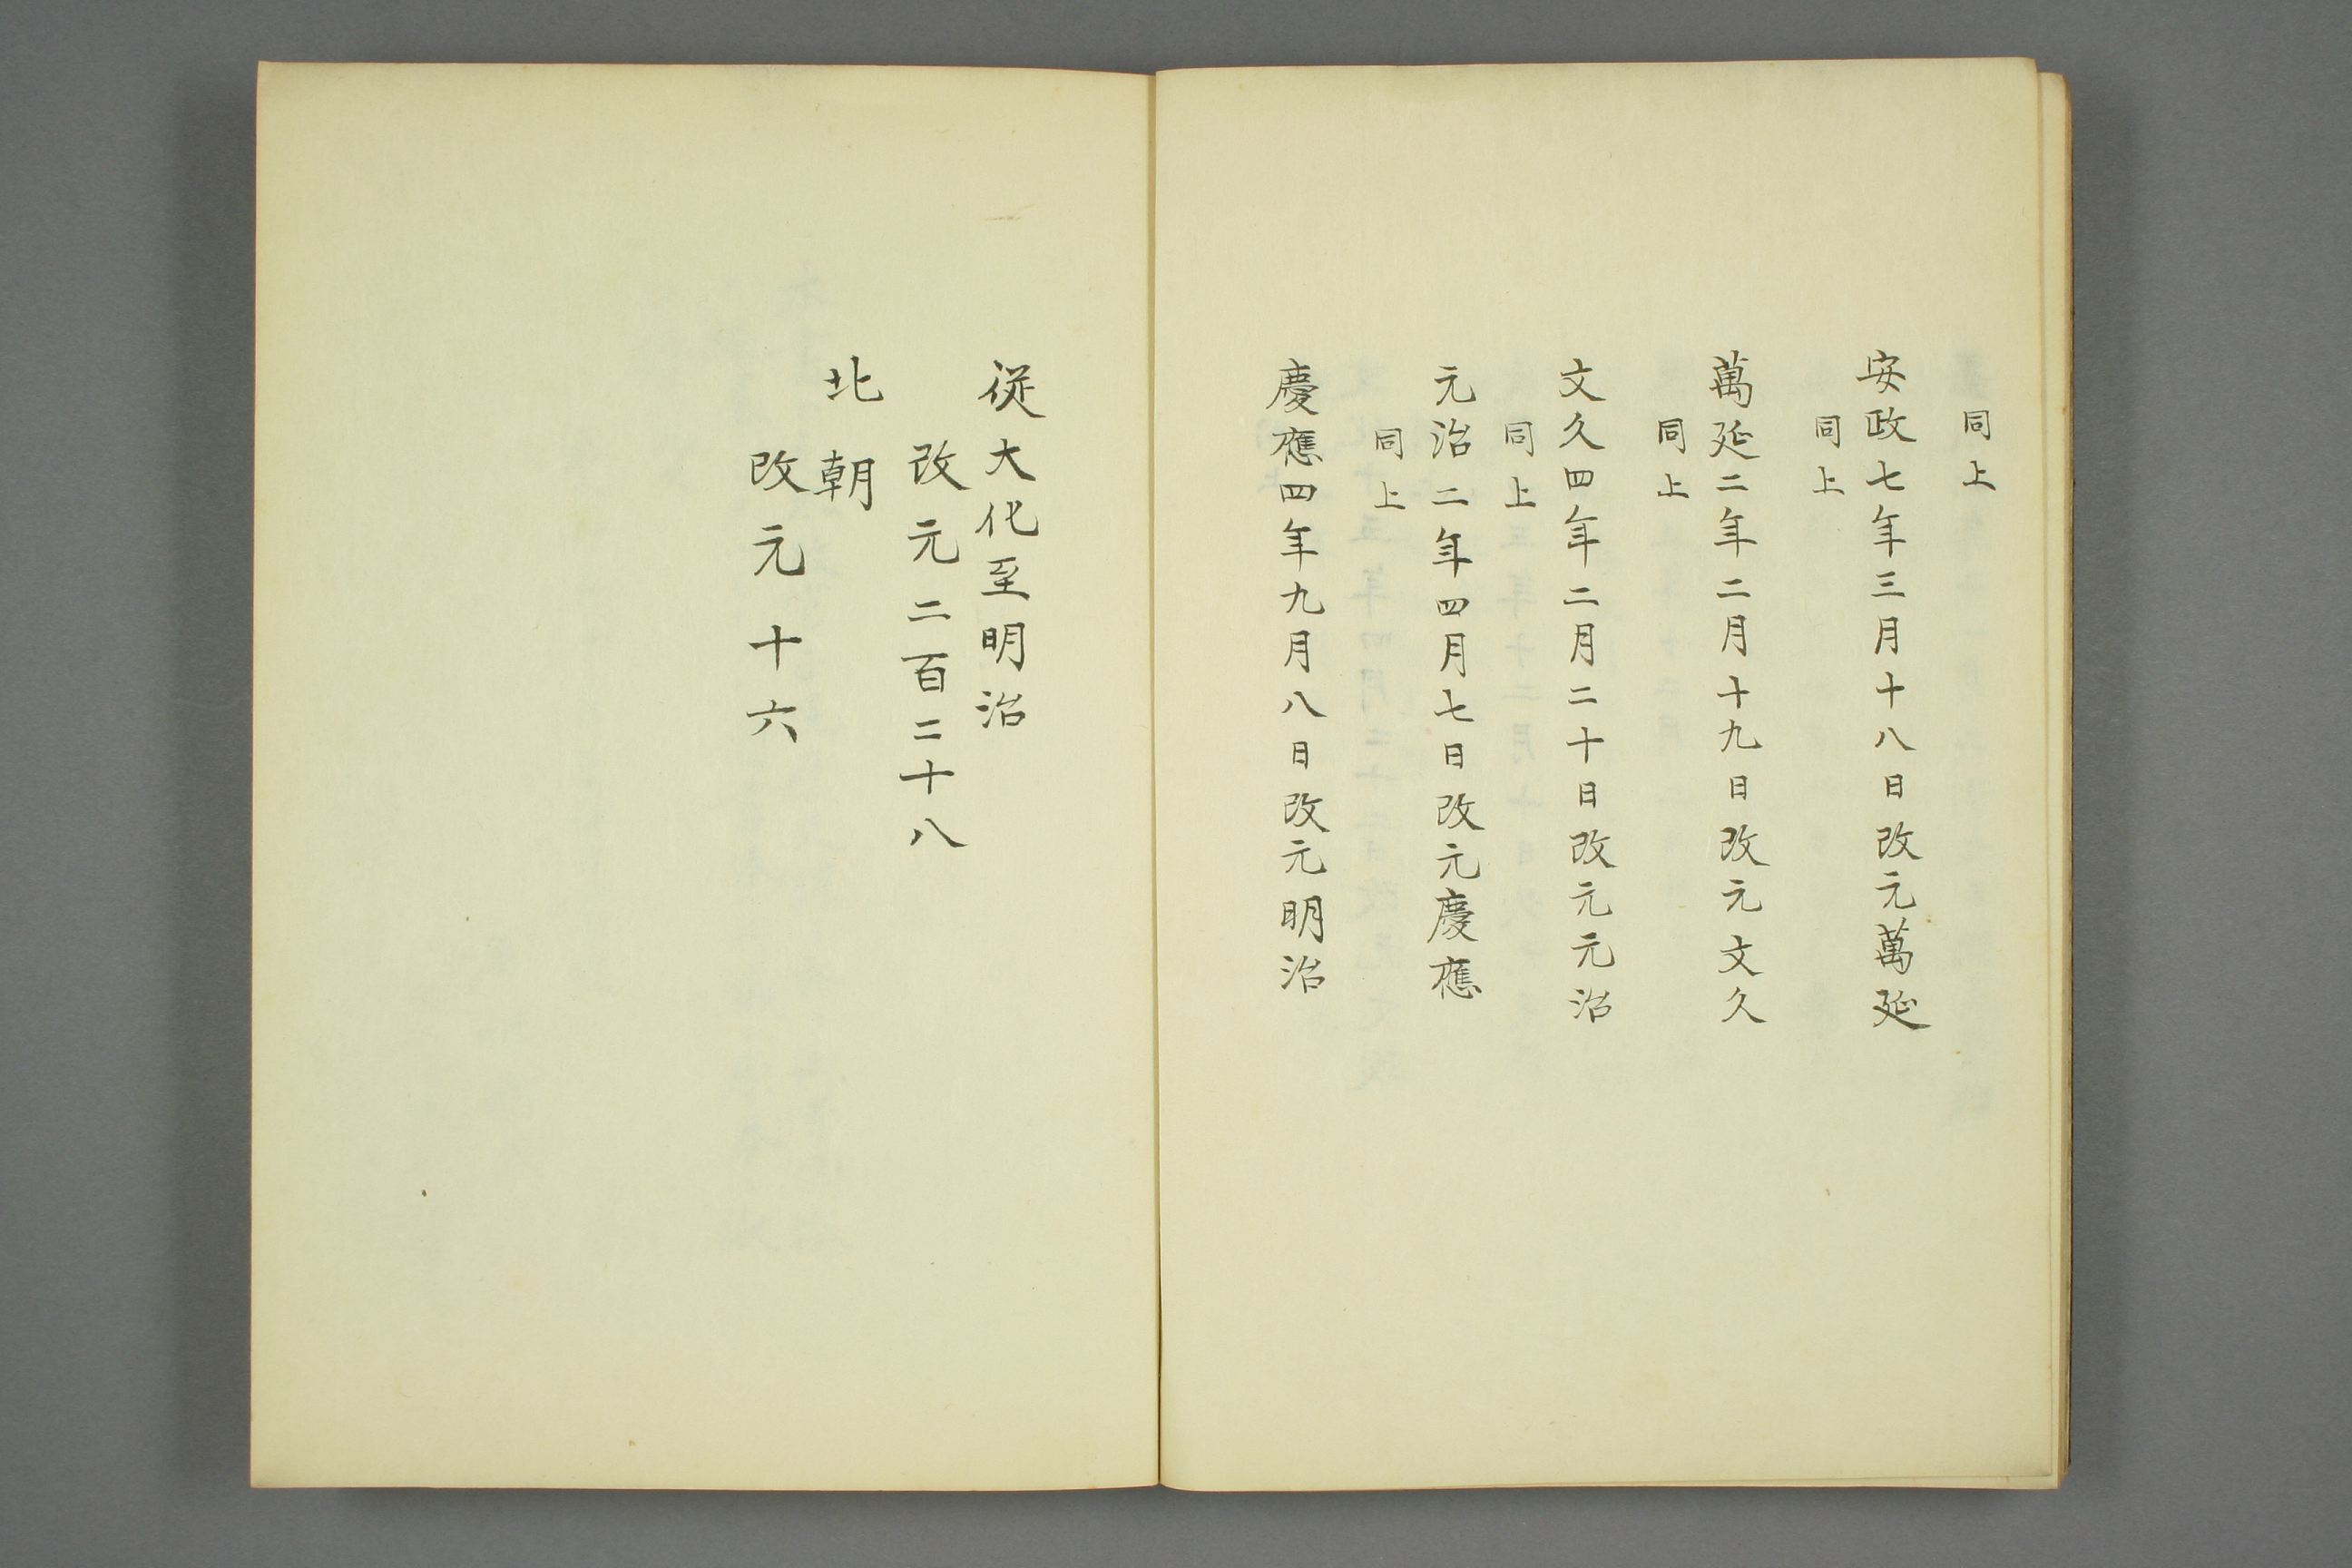 同上
安政七年三月十八日改元萬延
同上
萬延二年二月十九日改元文久
同上
文久四年二月二十日改元元治
同上
元治二年四月七日改元慶應
同上
慶應四年九月八日改元明治
従大化至明治
改元二百二十八
北朝
改元十六